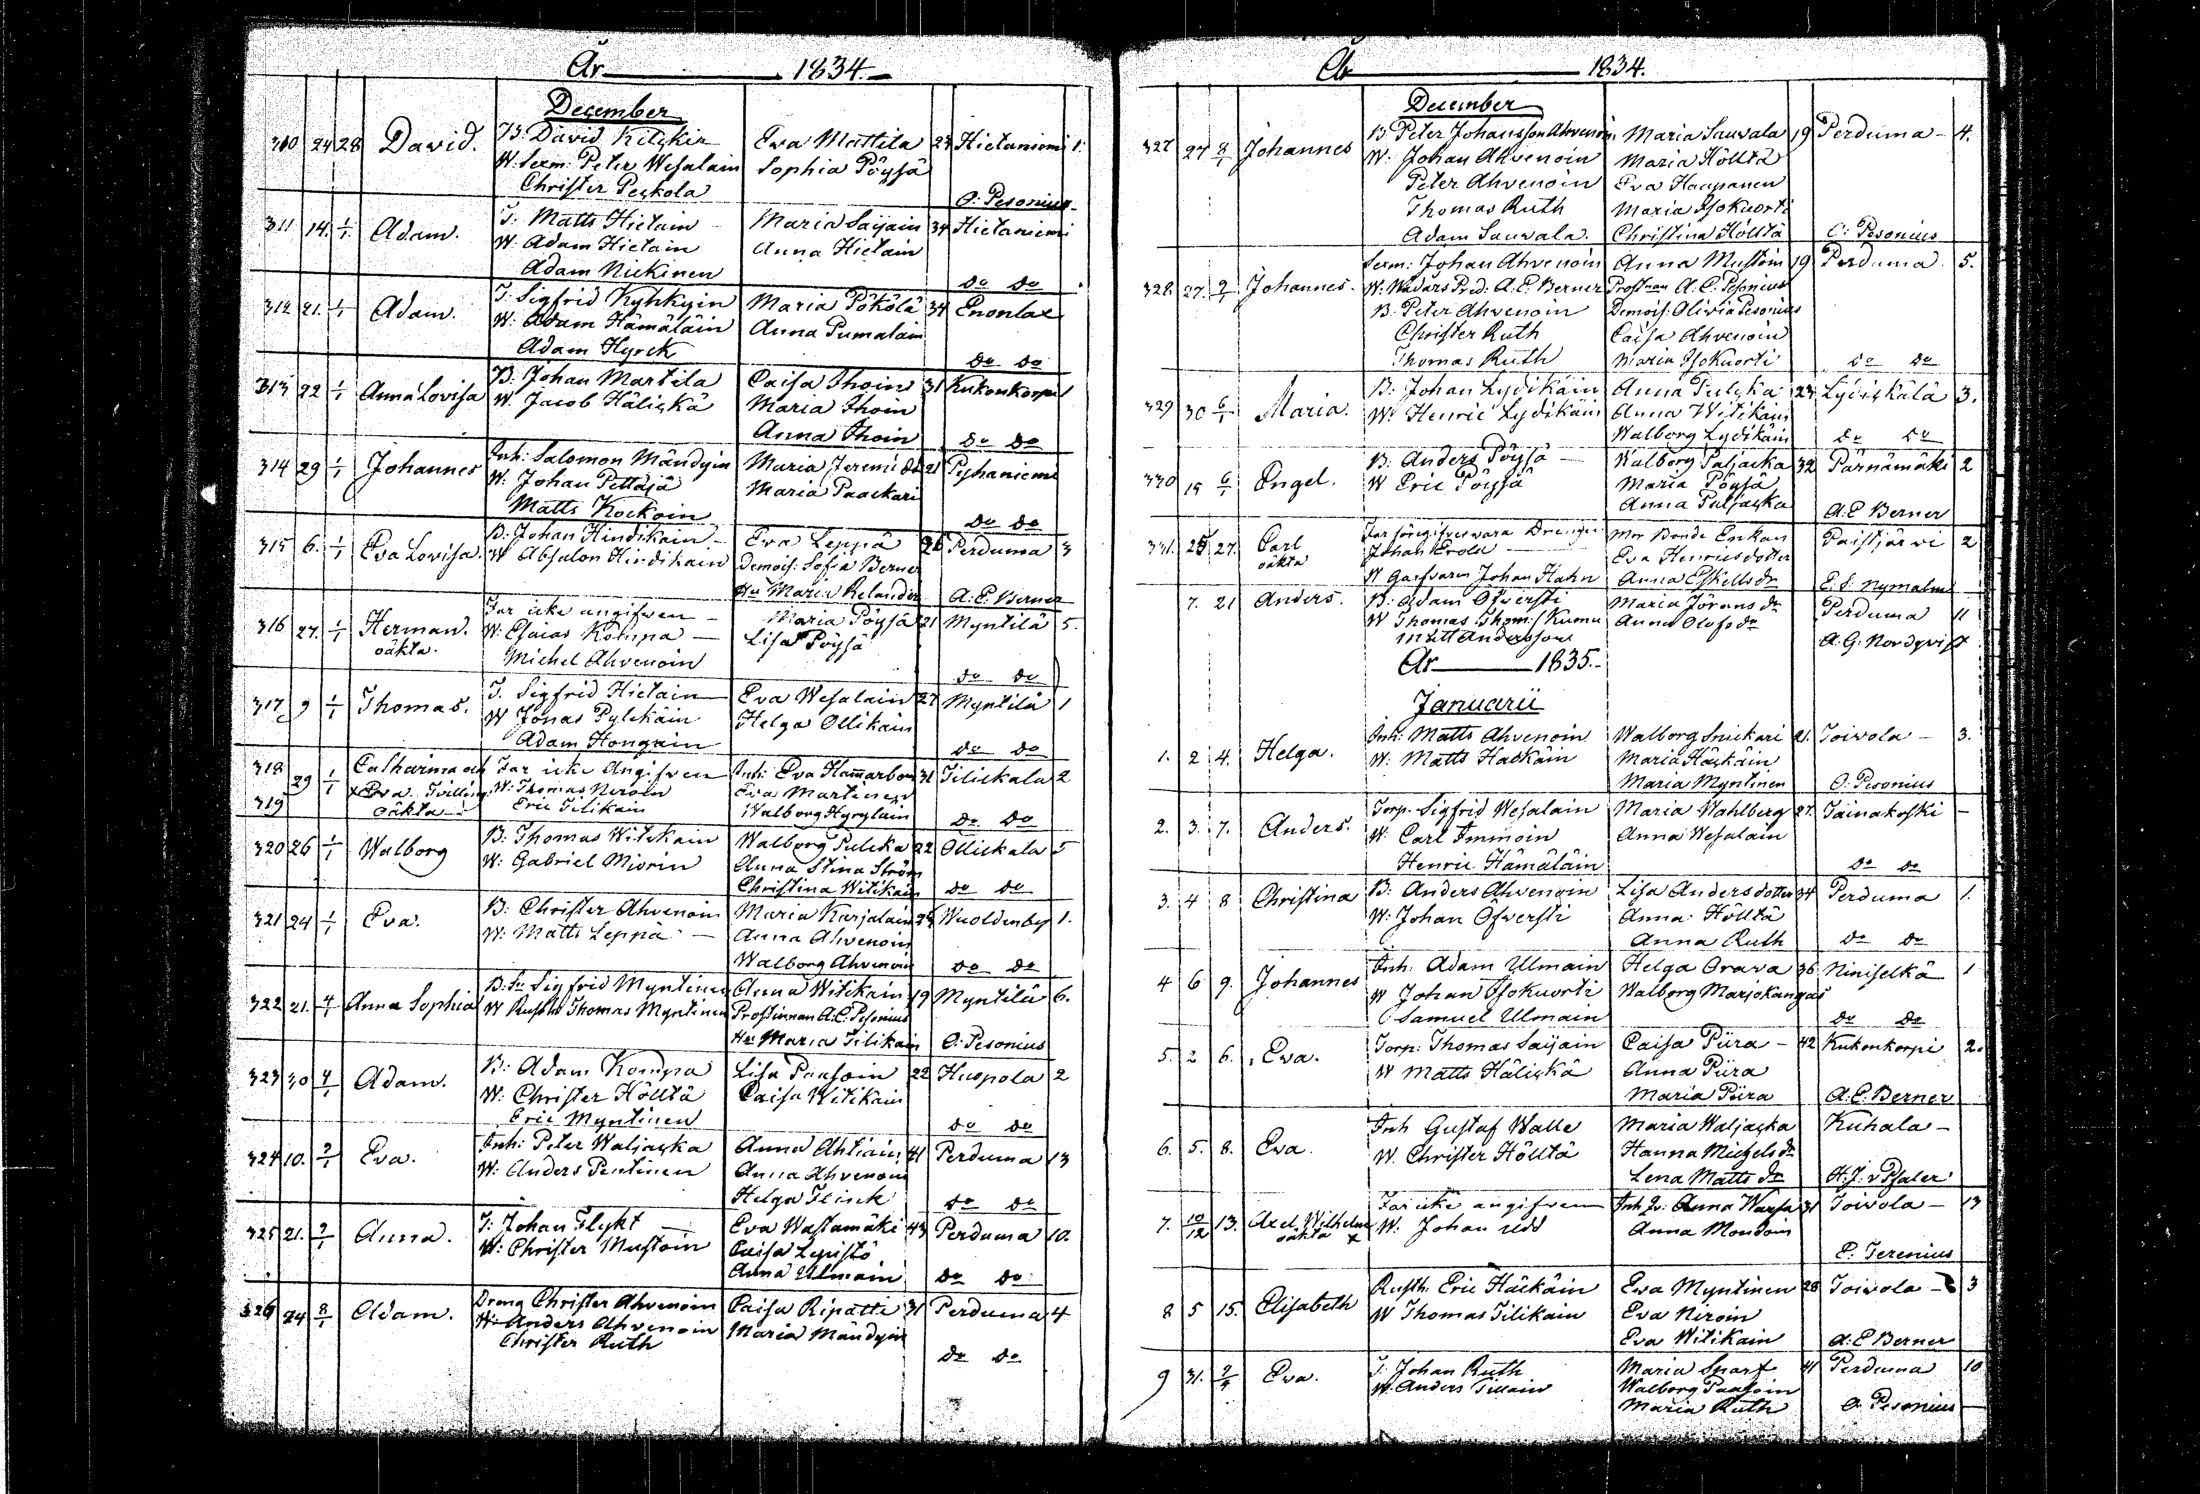 År 1834.
December
310 24 28 David. B: David Kilpkin Eva Mattila 23 Hietaniemi 1.
W: Sexm: Peter Wesalain Sophia Pöysä
Christer Peckola O: Pesonius
311 14. 1/1 Adam. T: Matts Hietain Maria Saijain 34 Hietaniemi
W: Adam Hietain Anna Hietain
Adam Nickinen do do
312 21. 1/1 Adam. T: Sigfrid Kyhkyin Maria Pökölä 34 Enonlax
W: Adam Hämäläin Anna Pumalain
Adam Hyrck do do
313 22 1/1 Anna Lovisa B: Johan Martila Caisa Ihoin 31 Kukonkorpi 1
W: Jacob Häligkä Maria Ihoin
Anna Ihoin do do
314 29 1/1 Johannes Inh: Salomon Mändyin Maria Jeremiædr 21 Pyhaniemi
W: Johan Pettäjä Maria Paackari
Matts Kockoin do do
315 6. 1/1 Eva Lovisa. B: Johan Hindikain Eva Leppä 26 Perduma 3
W Absalon Hindikain Demois: Sofia Berner
Hu Maria Relander A: E. Berner
316 27. 1/1 Herman. Far icke angifven Maria Pöysä 21 Myntilä 5.
oäkta. W: Esaias Kompa Lisa Pöysä
Michel Ahvenoin do do
317 9 1/1 Thomas. T. Sigfrid Hietain Eva Wesalain 27 Myntilä 1
W Jonas Pylckäin Helga Ollikain
Adam Hongain do do
318 29 1/1 Catharina och Far icke angifven Inh: Eva Hammarberg 31 Tilickala 2
Eva. Tvilling W: Thomas Niroin Eva Martinen
319 oäkta Eric Tilikain Walborg Hyrylain do do
320 26 1/1 Walborg B: Thomas Witikain Walborg Pulcka 22 Ollickala 5
W: Gabriel Miorin Anna Stina Ström
Christina Witikain do do
321 24 1/1 Eva. B: Christer Ahvenoin Maria Karjalain 24 Wuoldenby 1.
W: Matts Leppä Anna Ahvenoin
Walborg Ahvenoin do do
322 21. 4/1 Anna Sophia B: Sn Sigfrid Myntinen Anna Witikain 19 Myntilä 6.
W Rusth: Thomas Myntinen Prostinnan A: C. Pesonius
Hu: Maria Tilikain O: Pesonius
323 30 4/1 Adam. B: Adam Kompa Lisa Paasoin 22 Huspola 2
W: Christer Höltta Caisa Witikain
Eric Myntinen do do
324 10. 7/1 Eva. Inh: Peter Waljacka Anna Ahtiain 41 Perduma 13
W: Anders Pentinen Anna Ahvenoin
Helga Flinck do do
325 21. 7/1 Anna. T: Johan Flykt Eva Wastamäki 43 Perduma 10.
W: Christer Mustoin Caisa Lepistö
Anna Ulmain do do
326 24 8/1 Adam. Dreng Christer Ahvenoin Caisa Ripatti 31 Perduma 4
W: Anders Ahvenoin Maria Mändyin
Christer Ruth do do
År 1834.
December
327 27 8/1 Johannes B Peter Johansson Ahvenoin Maria Sauvala 19 Perduma 4.
W: Johan Ahvenoin Maria Höltta
Peter Ahvenoin Eva Haapanen
Thomas Ruth Maria Isokuorti
Adam Sauvala. Christina Höltta O: Pesonius
328 27. 9/1 Johannes. Sexm: Johan Ahvenoin Anna Mustoin 19 Perduma. 5.
W: Wadars Pred. A. E. Berner Prostinnan A. C. Pesonius
B: Peter Ahvenoin Demois: Olivia Pesonius
Christer Ruth Caisa Ahvenoin
Thomas Ruth Maria Isokuorti do do
329 30 6/1 Maria. B: Johan Lydikäin Anna Pulcka 23 Lydickälä 3.
W: Henric Lydikäin Anna Witikain
Walborg Lydikäin do do
330 15 6/1 Engel. B: Anders Pöysä Walborg Paljacka 32 Pärnämäki 2
W Eric Pöysä Maria Pöysä
Anna Paljacka A: E Berner
331. 25 27. Carl Far föregifves vara Drengen Mor Bonde Enkan Paistjärvi 2
oäkta Johan Erola Eva Henricsdotter
W Garfvaren Johan Hahn Anna Eskelsdr E. S: Nymalm
7. 21 Anders. B: Adam Öfversti Maria Jöransdr Perduma 11
W Thomas Thom: Kumu Anna Olofsdr
Matt Andersson A: G: Nordqvist
År 1835.
Januarii
1. 2 4. Helga. Inh: Matts Ahvenoin Walborg Snickari 21. Toivola 3.
W: Matts Hackäin Maria Häckäin
Maria Myntinen O: Pesonius
2. 3. 7. Anders. Torp. Sigfrid Wesalain Maria Wahlberg 27. Tainakoski
W. Carl Immoin Anna Wesalain
Henric Hämäläin do do
3. 4 8 Christina B: Anders Ahvenoin Lisa Andersdotter 34 Perduma 1.
W: Johan Öfversti Anna Höltta
Anna Ruth do do
4 6 9. Johannes Inh: Adam Ulmain Helga Orava 36 Niniselkä 1
W Johan Isokuorti Walborg Marjokangas
Samuel Ulmain do do
5. 2 6. Eva. Torp: Thomas Saijain Caisa Piira 42 Kukonkorpi 2.
W Matts Häligkä Anna Piira
Maria Piira A: E. Berner
6. 5. 8. Eva. Inh Gustaf Walle Maria Waljacka Kuhala
W. Christer Höltta Hanna Michelsdr
Lena Mattsdr H. J. v Pfaler
7. 10/12 13. Axel Wilhelm Far icke angifven Inh Qv: Anna Warsa 31 Toivola 13
oäkta W. Johan Udd Anna Mondoin
E. Ferenius
8 5 15. Elisabeth Rusth: Eric Häckäin Eva Myntinen 28 Toivola 3
W Thomas Tilikain Eva Niroin
Eva Witikain A: E Berner
9 31. 2/4 Eva. T. Johan Ruth Maria Snarf 41 Perduma 10
W. Anders Tillain Walborg Paasoin
Maria Ruth O. Pesonius